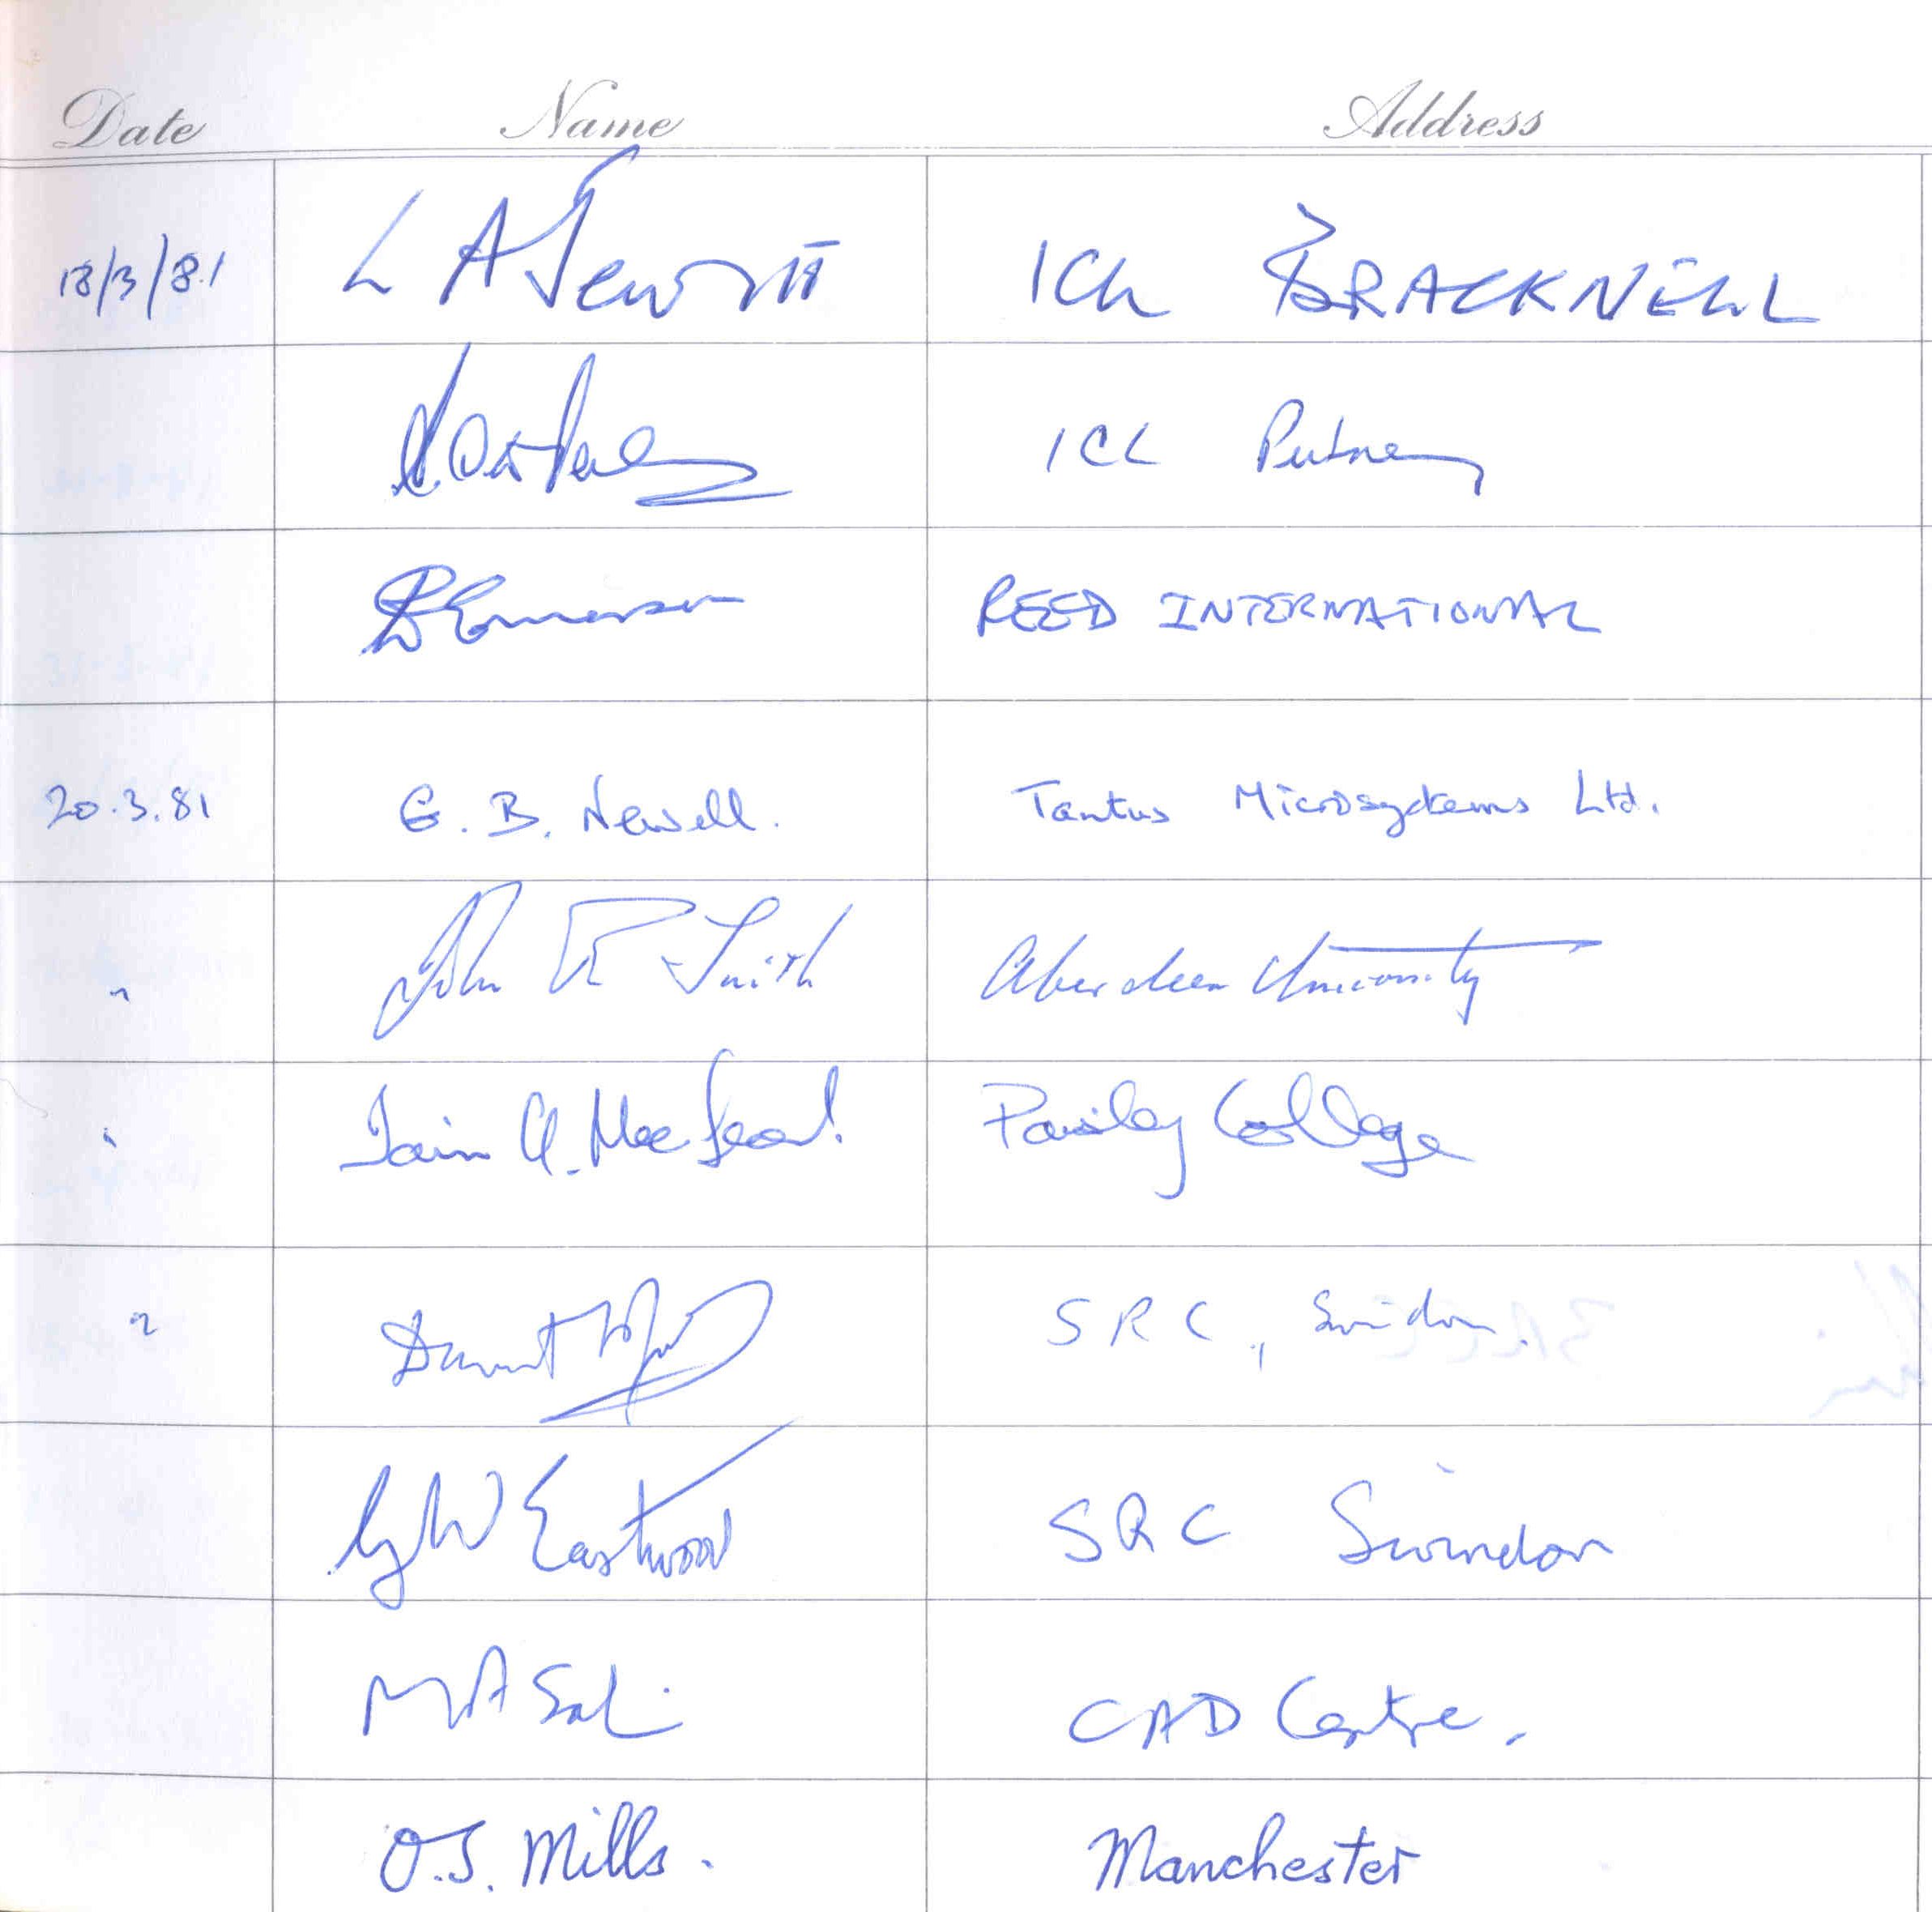 Date Name Address
18/3/81 L A Jewitt ICL BRACKNELL
ICL Putney
REED INTERNATIONAL
20.3.81 G. B. Newell. Tantus Microsystems Ltd.
" John R Smith Aberdeen University
" Iain A. MacLeod. Paisley College
" SRC, Swindon
G W Eastwood SRC Swindon
M A Sabin CAD Centre.
O.S. Mills. Manchester